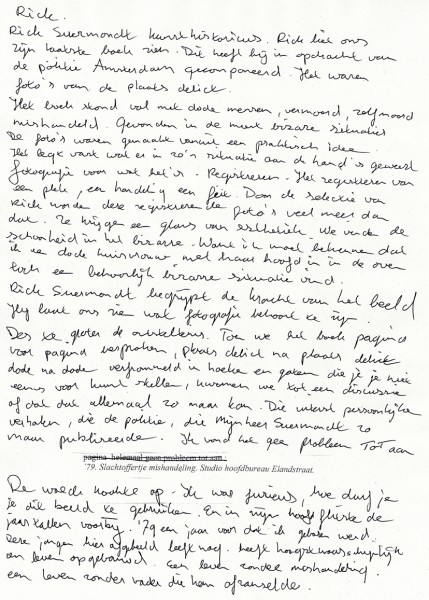 Rick.
Rick Suermondt kunsthistoricus. Rick liet ons
zijn laatste boek zien. Die heeft hij in opdracht van
de politie Amsterdam gecomponeerd. Het waren
foto's van de plaats delict.
Het boek stond vol met dode mensen, vermoord, zelfmoord
mishandeld. Gevonden in de meest bizarre situaties
De foto's waren gemaakt vanuit een praktisch idee.
Het legt vast wat er in zo'n situatie aan de hand is geweest
fotografie voor wat het is. Registreren. Het registreren van
een plek, een handeling een feit. Door de selectie van
Rick worden deze registrerende foto's veel meer dan
dat. Ze krijgen een glans van esthetiek. We vinden de
schoonheid in het bizarre. Want ik moet bekennen dat
ik een dode huisvrouw met haar hoofd in in de oven
toch een behoorlijk bizarre situatie vind.
Rick Suermondt begrijpt de kracht van het beeld
Hij laat ons zien wat fotografie behoort te zijn.
Des te groter de ontketenis. Toen we het boek pagina
voor pagina bespraken, plaats delict na plaats delict
dode na dode verfrommeld in hoeken en gaten die je je niet
eens voor kunt stellen, kwamen we tot een discussie
of dat dat allemaal zo maar kan. Die uiterst persoonlijke
verhalen, die de politie, die mijnheer Suermondt zo
maar publiceerde. Ik vond het geen probleem tot aan
pagina helemaal geen probleem tot aan.
'79. Slachtoffertje mishandeling. Studio hoofdbureau Elandstraat.
De woede kookte op. Ik was furieus, hoe durf je
je dit beeld te gebruiken. En in mijn hoofd flitste de
jaartallen voorbij. '79 een jaar voor dat ik geboren werd.
Deze jongen hier afgebeeld leeft nog. heeft hoogstwaarschijnlijk
een leven opgebouwd. Een leven zonder mishandeling.
een leven zonder vader die hem afranselde.